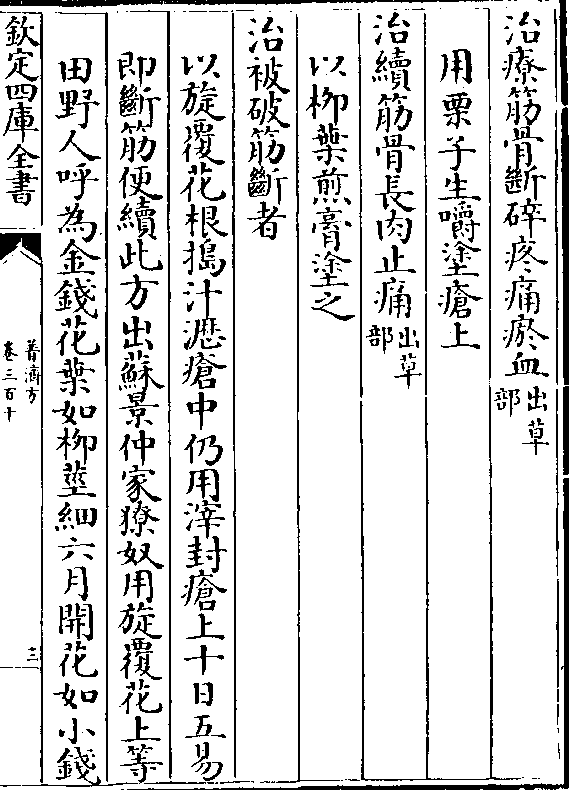 治療筋骨斷碎疼痛瘀血出草部
用栗子生嚼塗瘡上
治續筋骨長肉止痛出草部
以柳葉煎膏塗之
治被破筋斷者
以旋覆花根搗汁瀝瘡中仍用滓封瘡上十日五易
即斷筋便續此方出蘇景仲家獠奴用旋覆花上等
田野人呼為金錢花葉如柳莖細六月開花如小錢
欽定四庫全書
普濟方
卷三百十
三